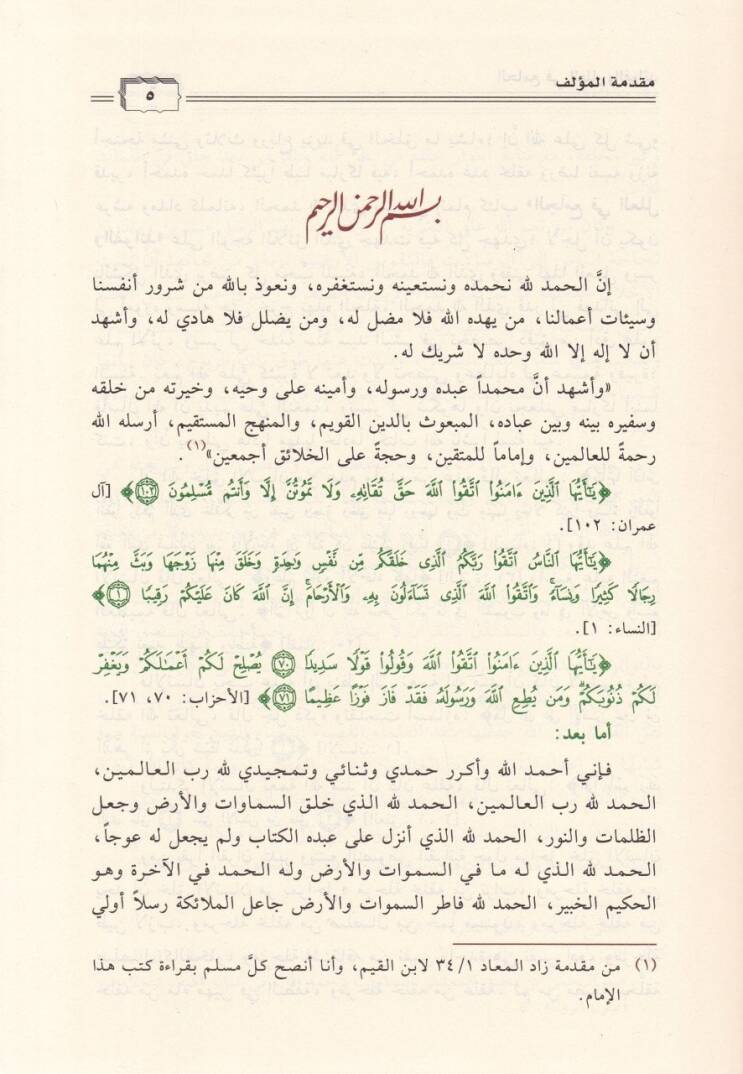 مقدمة المؤلف
٥
بسم الله الرحمن الرحيم
إنَّ الحمد لله نحمده ونستعينه ونستغفره، ونعوذ بالله من شرور أنفسنا
وسيئات أعمالنا، من يهده الله فلا مضل له، ومن يضلل فلا هادي له، وأشهد
أن لا إله إلا الله وحده لا شريك له.
«وأشهد أنَّ محمداً عبده ورسوله، وأمينه على وحيه، وخيرته من خلقه
وسفيره بينه وبين عباده، المبعوث بالدين القويم، والمنهج المستقيم، أرسله الله
رحمةً للعالمين، وإماماً للمتقين، وحجةً على الخلائق أجمعين»(١).
﴿يَٰٓأَيُّهَا ٱلَّذِينَ ءَامَنُوا۟ ٱتَّقُوا۟ ٱللَّهَ حَقَّ تُقَاتِهِۦ وَلَا تَمُوتُنَّ إِلَّا وَأَنتُم مُّسْلِمُونَ ١٠٢﴾ [آل
عمران: ١٠٢].
﴿يَٰٓأَيُّهَا ٱلنَّاسُ ٱتَّقُوا۟ رَبَّكُمُ ٱلَّذِى خَلَقَكُم مِّن نَّفْسٍ وَٰحِدَةٍ وَخَلَقَ مِنْهَا زَوْجَهَا وَبَثَّ مِنْهُمَا
رِجَالًا كَثِيرًا وَنِسَآءً ۚ وَٱتَّقُوا۟ ٱللَّهَ ٱلَّذِى تَسَآءَلُونَ بِهِۦ وَٱلْأَرْحَامَ ۚ إِنَّ ٱللَّهَ كَانَ عَلَيْكُمْ رَقِيبًا ١﴾
[النساء: ١].
﴿يَٰٓأَيُّهَا ٱلَّذِينَ ءَامَنُوا۟ ٱتَّقُوا۟ ٱللَّهَ وَقُولُوا۟ قَوْلًا سَدِيدًا ٧٠ يُصْلِحْ لَكُمْ أَعْمَٰلَكُمْ وَيَغْفِرْ
لَكُمْ ذُنُوبَكُمْ ۗ وَمَن يُطِعِ ٱللَّهَ وَرَسُولَهُۥ فَقَدْ فَازَ فَوْزًا عَظِيمًا ٧١﴾ [الأحزاب: ٧٠، ٧١].
أما بعد:
فإني أحمد الله وأكرر حمدي وثنائي وتمجيدي لله رب العالمين،
الحمد لله رب العالمين، الحمد لله الذي خلق السماوات والأرض وجعل
الظلمات والنور، الحمد لله الذي أنزل على عبده الكتاب ولم يجعل له عوجاً،
الحمد لله الذي له ما في السموات والأرض وله الحمد في الآخرة وهو
الحكيم الخبير، الحمد لله فاطر السموات والأرض جاعل الملائكة رسلاً أولي
(١) من مقدمة زاد المعاد ٣٤/١ لابن القيم، وأنا أنصح كلَّ مسلم بقراءة كتب هذا
الإمام.